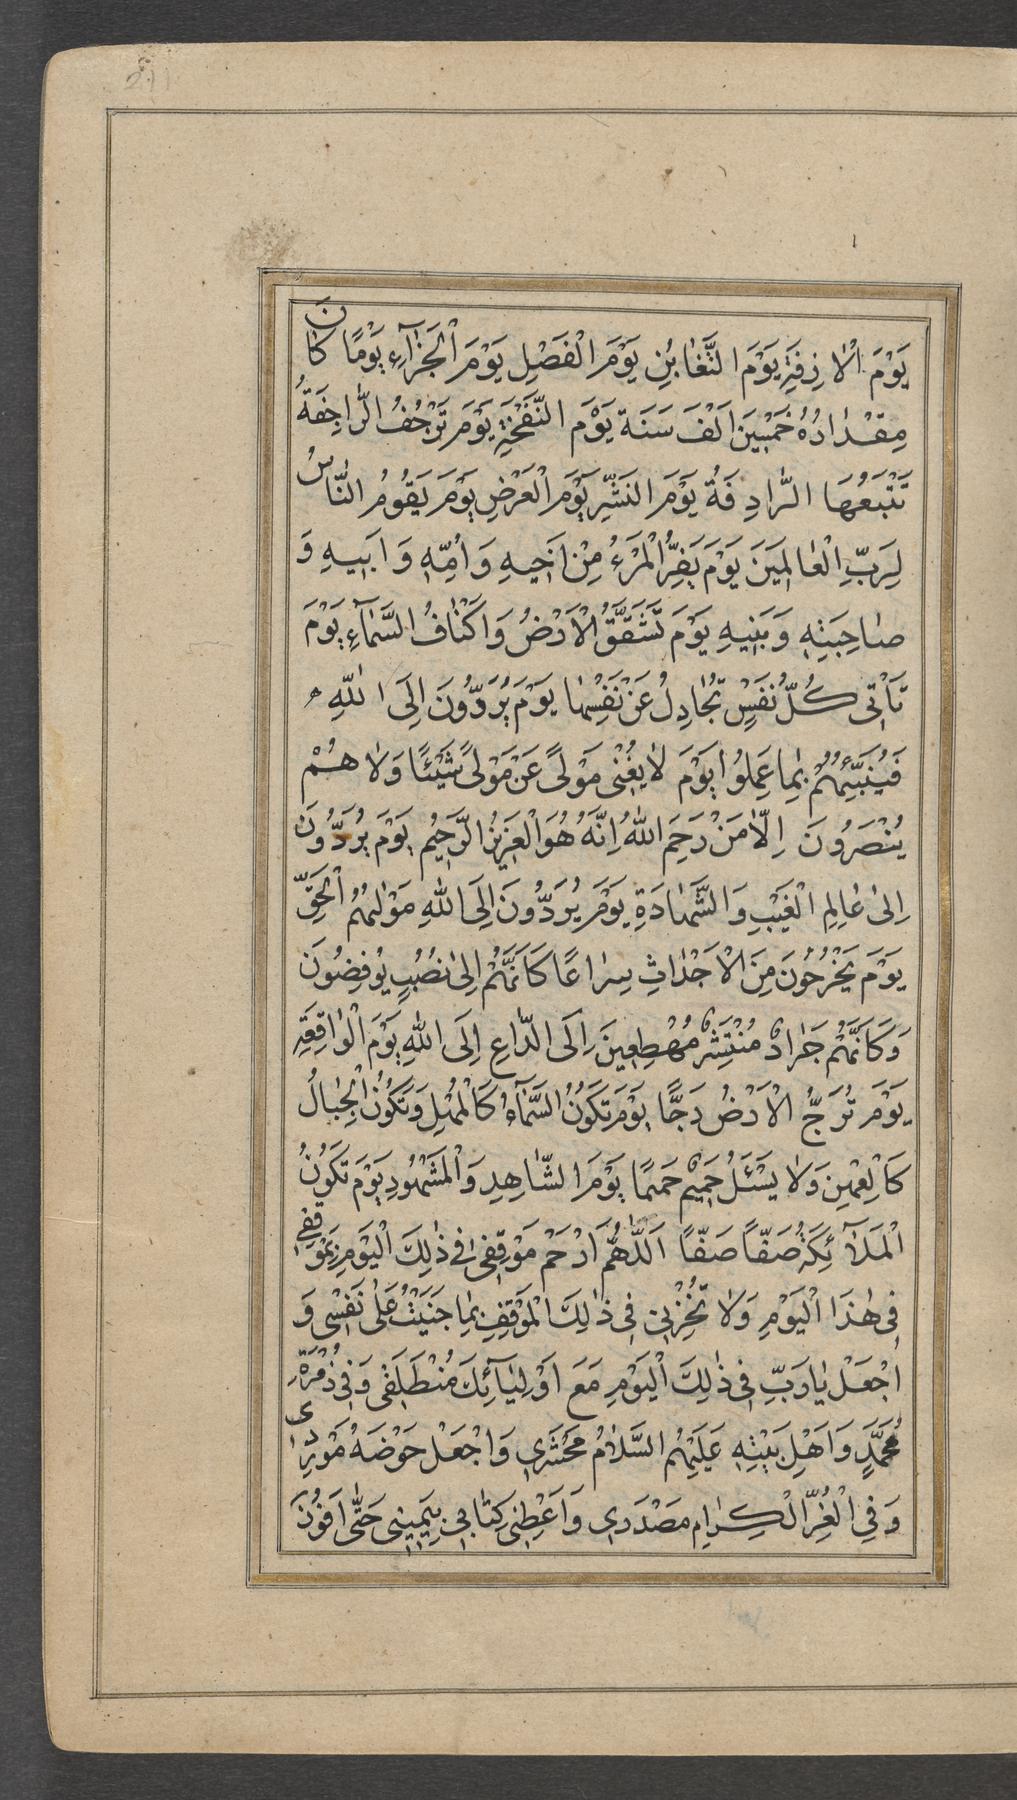 يَوْمَ الْاٰزِفَةِ يَوْمَ التَّغٰابُنِ يَوْمَ الْفَصْلِ يَوْمَ الْجَزٰآءِ يَوْمًا كٰانَ
مِقْدٰارُهُ خَمْسِينَ اَلْفَ سَنَة يَوْمَ النَّفْخَةِ يَوْمَ تَرْجُفُ الرّٰاجِفَةُ
تَتْبَعُهَا الرّٰادِفَةُ يَوْمَ النَشْرِ يَوْمَ الْعَرْضِ يَوْمَ يَقُومُ النّٰاسُ
لِرَبِّ الْعٰالَمِينَ يَوْمَ يَفِرُّ الْمَرْءُ مِنْ اَخِيهِ وَاُمِّهِ وَاَبِيهِ وَ
صٰاحِبَتِهِ وَبَنِيهِ يَوْمَ تَشَقَّقُ الْاَرْضُ وَاَكْنٰافُ السَّمٰآءِ يَوْمَ
تَأْتِى كُلُّ نَفْسٍ تُجٰادِلُ عَنْ نَفْسِهٰا يَوْمَ يُرَدُّونَ اِلَى اللّٰهِ
فَيُنَبِّئُهُمْ بِمٰا عَمِلُوا يَوْمَ لٰا يُغْنى مَوْلىً عَنْ مَوْلىً شَيْئًا وَلٰا هُمْ
يُنْصَرُونَ اِلّٰا مَنْ رَحِمَ اللّٰهُ اِنَّهُ هُوَ الْعَزِيزُ الرَّحِيْم يَوْمَ يُرَدُّونَ
اِلىٰ عٰالِمِ الْغَيْبِ وَالشَّهٰادَةِ يَوْمَ يُرَدُّونَ اِلَى اللّٰهِ مَوْلٰيهُمُ الْحَقِّ
يَوْمَ يَخْرُجُونَ مِنَ الْاَجْدٰاثِ سِرٰاعًا كَاَنَّهُمْ اِلىٰ نُصُبٍ يُوفِضُونَ
وَكَاَنَّهُمْ جَرٰادٌ مُنْتَشِرٌ مُهْطِعِينَ اِلَى الدّٰاعِ اِلَى اللّٰهِ يَوْمَ الْوٰاقِعَةِ
يَوْمَ تُرَجُّ الْاَرْضُ رَجًّا يَوْمَ تَكُونُ السَّمٰآءُ كَالْمُهْلِ وَتَكُونُ الْجِبٰالُ
كَالْعِهْنِ وَلٰا يَسْئَلُ حَمِيمٌ حَمِيمًا يَوْمَ الشّٰاهِدِ وَالْمَشْهُودِ يَوْمَ تَكُونُ
الْمَلٰآئِكَةُ صَفًّا صَفًّا اَللّٰهُمَّ ارْحَمْ مَوْقِفى فِى ذٰلِكَ الْيَوْمِ بِمَوْقِفِى
فِى هٰذَا الْيَوْمِ وَلٰا تُخْزِنِى فِى ذٰلِكَ الْمَوْقِفِ بِمٰا جَنَيْتُ عَلىٰ نَفْسِى وَ
اجْعَلْ يٰا رَبِّ فِى ذٰلِكَ الْيَوْمِ مَعَ اَوْلِيٰآئِكَ مُنْطَلَقِى وَفِى زُمْرَةِ
مُحَمَّدٍ وَاَهْلِ بَيْتِهِ عَلَيْهِمُ السَّلٰامُ مَحْشَرِى وَاجْعَلْ حَوْضَهُ مَوْرِدِى
وَفِي الْغُرِّ الْكِرٰامِ مَصْدَرِى وَاَعْطِنِى كِتٰابِى بِيَمِينِى حَتّٰى اَفُوْزَ